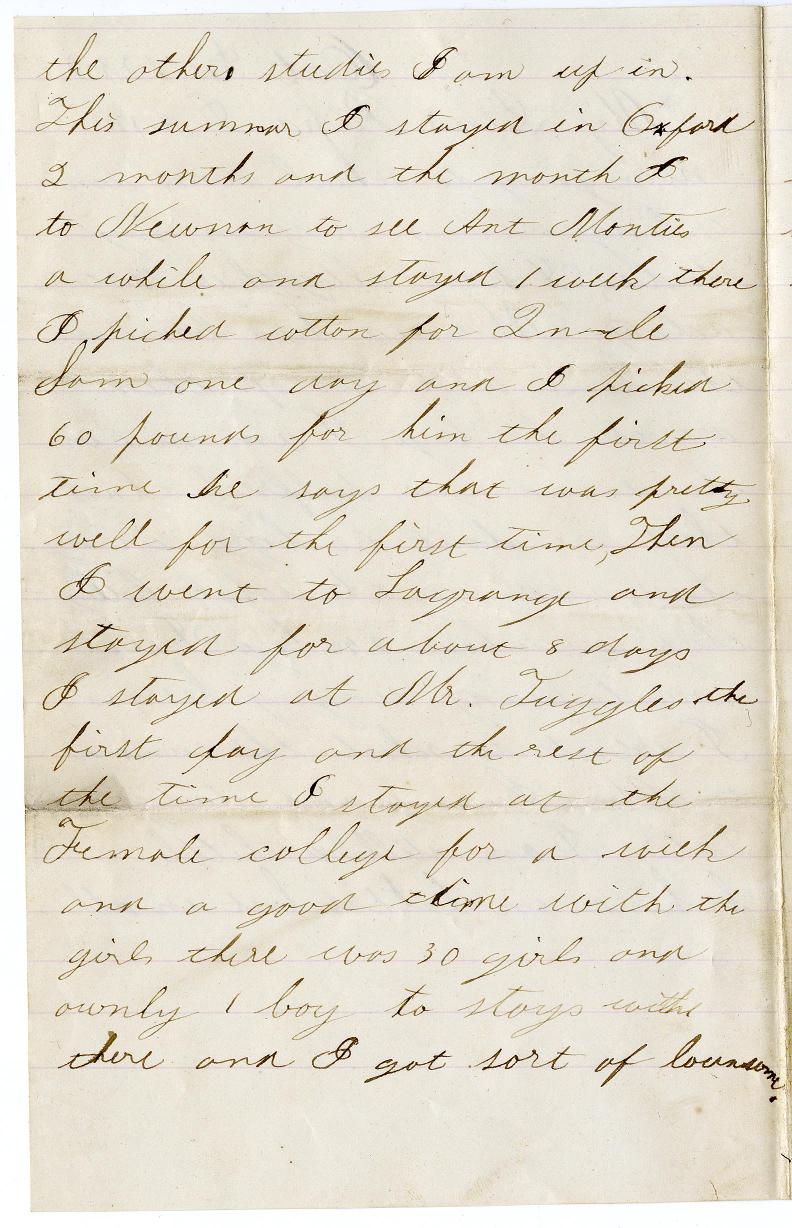 the others studies I am up in.
This summar I stayed in Oxford
2 months and the month I
to Newnan to see Ant Monties
a while and stayed 1 week there
I picked cotton for Uncle
Sam one day and I picked
60 pounds for him the first
time he says that was pretty
well for the first time, Then
I went to Lagrange and
stayed for about 8 days
I stayed at Mr. Tuggles the
first day and the rest of
the time I stayed at the
Female college for a week
and a good time with the
girls there was 30 girls and
ownly 1 boy to stays with
there and I got sort of lounsome.